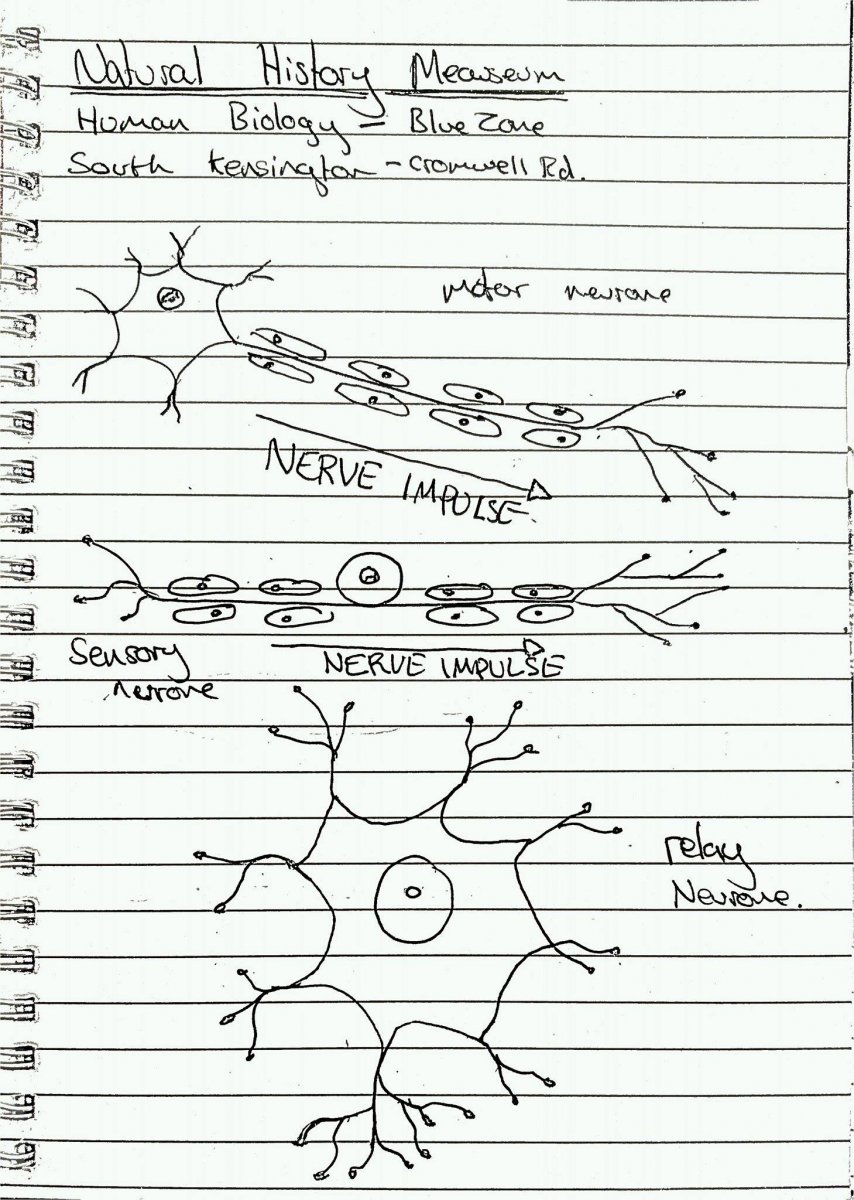 Natural History Meauseum
Human Biology - Blue Zone
South Kensington - Cromwell Rd.
motor neurone
NERVE IMPULSE.
NERVE IMPULSE
Sensory
neurone
relay
Neurone.